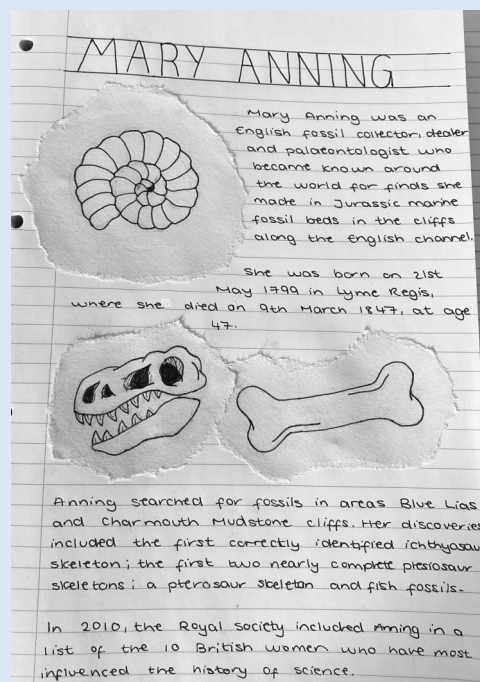 MARY ANNING
Mary Anning was an
English fossil collector, dealer
and palaeontologist who
became known around
the world for finds she
made in Jurassic marine
fossil beds in the cliffs
along the English channel.
She was born on 21st
May 1799 in Lyme Regis,
where she died on 9th March 1847, at age
47.
Anning searched for fossils in areas Blue Lias
and Charmouth Mudstone cliffs. Her discoveries
included the first correctly identified ichthyosau
skeleton; the first two nearly complete plesiosaur
skeletons; a pterosaur skeleton and fish fossils.
In 2010, the Royal society included Anning in a
list of the 10 British women who have most
influenced the history of science.